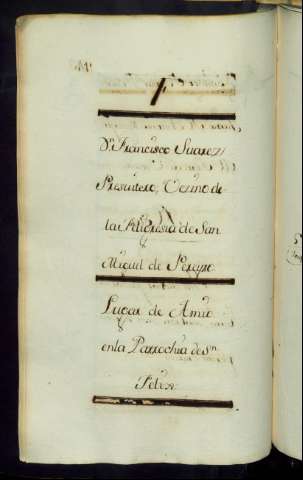 Dn. Francisco Suarez,
Presvitero, Vecino de
la Feligresia de San
Miguel de Pereyra
Lugar de
en la Parrochia de Sn